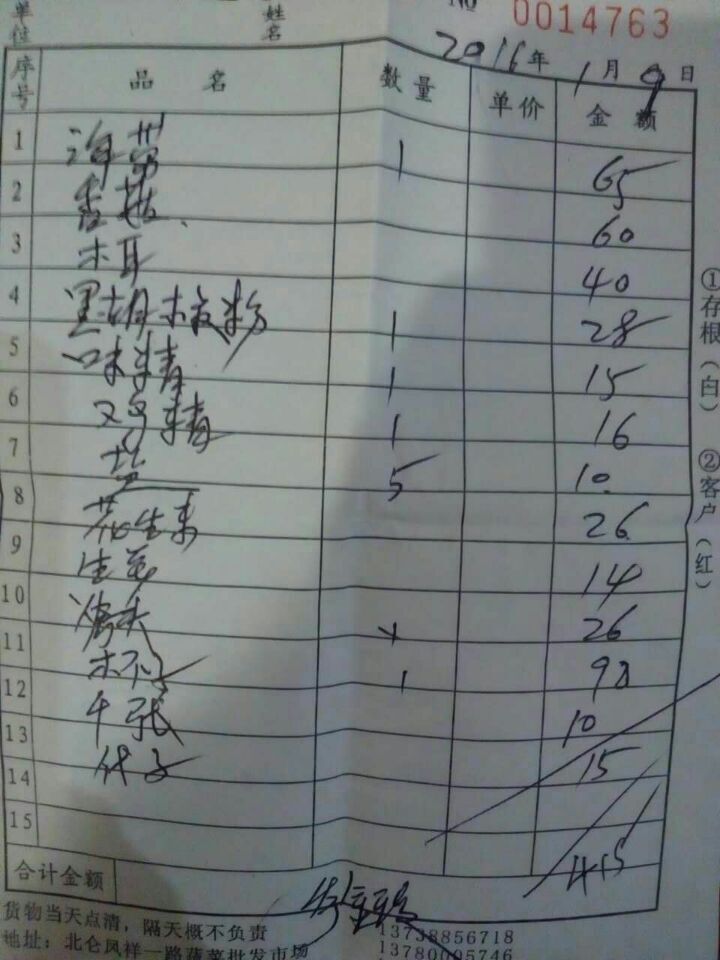 单位 姓名 № 0014763
2016年1月9日
序号 品名 数量 单价 金额
1 海带 1 65
2 香菇 60
3 木耳 40
4 黑胡椒粉 1 28
5 味精 1 15
6 鸡精 1 16
7 5 10
8 花生米 26
9 生 14
10 26
11 1 98
12 千张 10
13 袋子 15
14
15
合计金额 415
①存根（白） ②客户（红）
货物当天点清，隔天概不负责
13738856718
地址：北仑凤祥一路蔬菜批发市场 13780005746